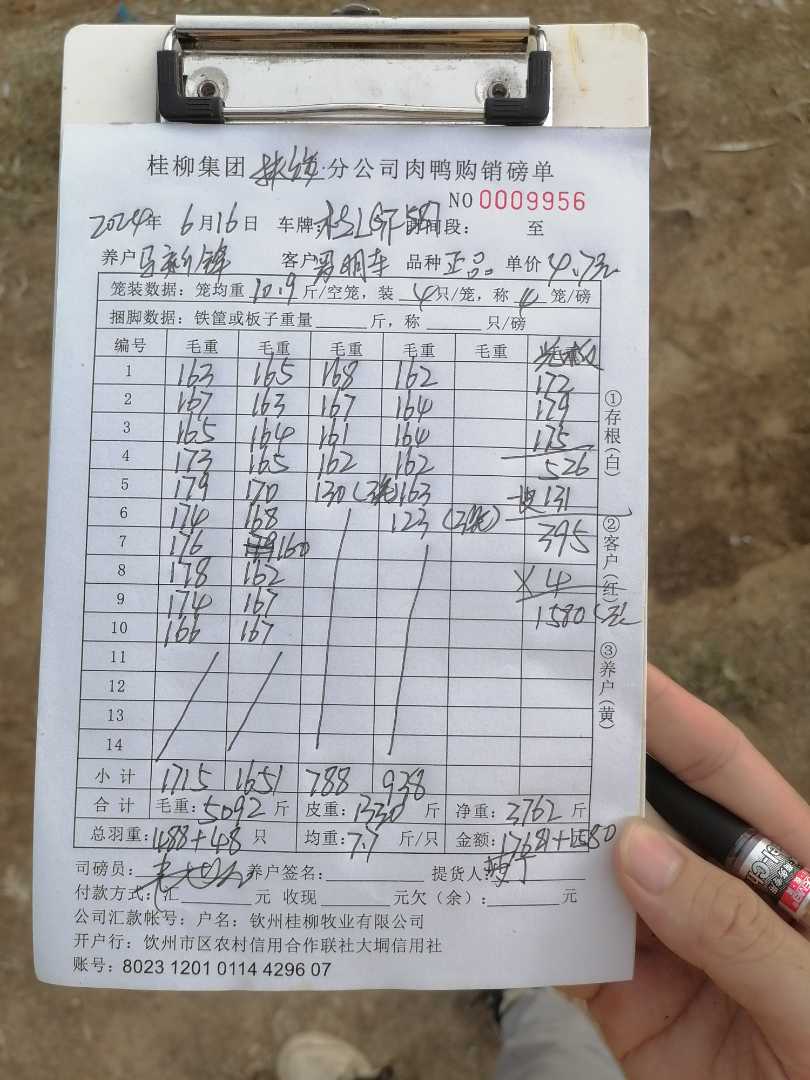 桂柳集团 分公司肉鸭购销磅单
NO 0009956
2024年 6月16日 车牌: 时间段: 至
养户 客户 品种 正品 单价 4.7元
笼装数据: 笼均重 10.9 斤/空笼, 装 4 只/笼, 称 4 笼/磅
捆脚数据: 铁筐或板子重量 斤, 称 只/磅
编号 毛重 毛重 毛重 毛重 毛重
1 163 165 168 162 172
2 167 163 167 164 179
3 165 164 161 164 175
4 173 165 162 162 526
5 179 170 130 163 131
6 174 168 123 395
7 176 160
8 178 162 ×4
9 174 167 1580
10 166 167
11
12
13
14
小计 1715 1651 788 938
合计 毛重: 5092 斤 皮重: 1330 斤 净重: 3762 斤
总羽重: 488+48 只 均重: 7.7 斤/只 金额: 17681+1580
司磅员: 养户签名: 提货人:
付款方式: 汇 元 收现 元欠(余): 元
公司汇款帐号: 户名: 钦州桂柳牧业有限公司
开户行: 钦州市区农村信用合作联社大垌信用社
账号: 8023 1201 0114 4296 07
①存根(白)
②客户(红)
③养户(黄)